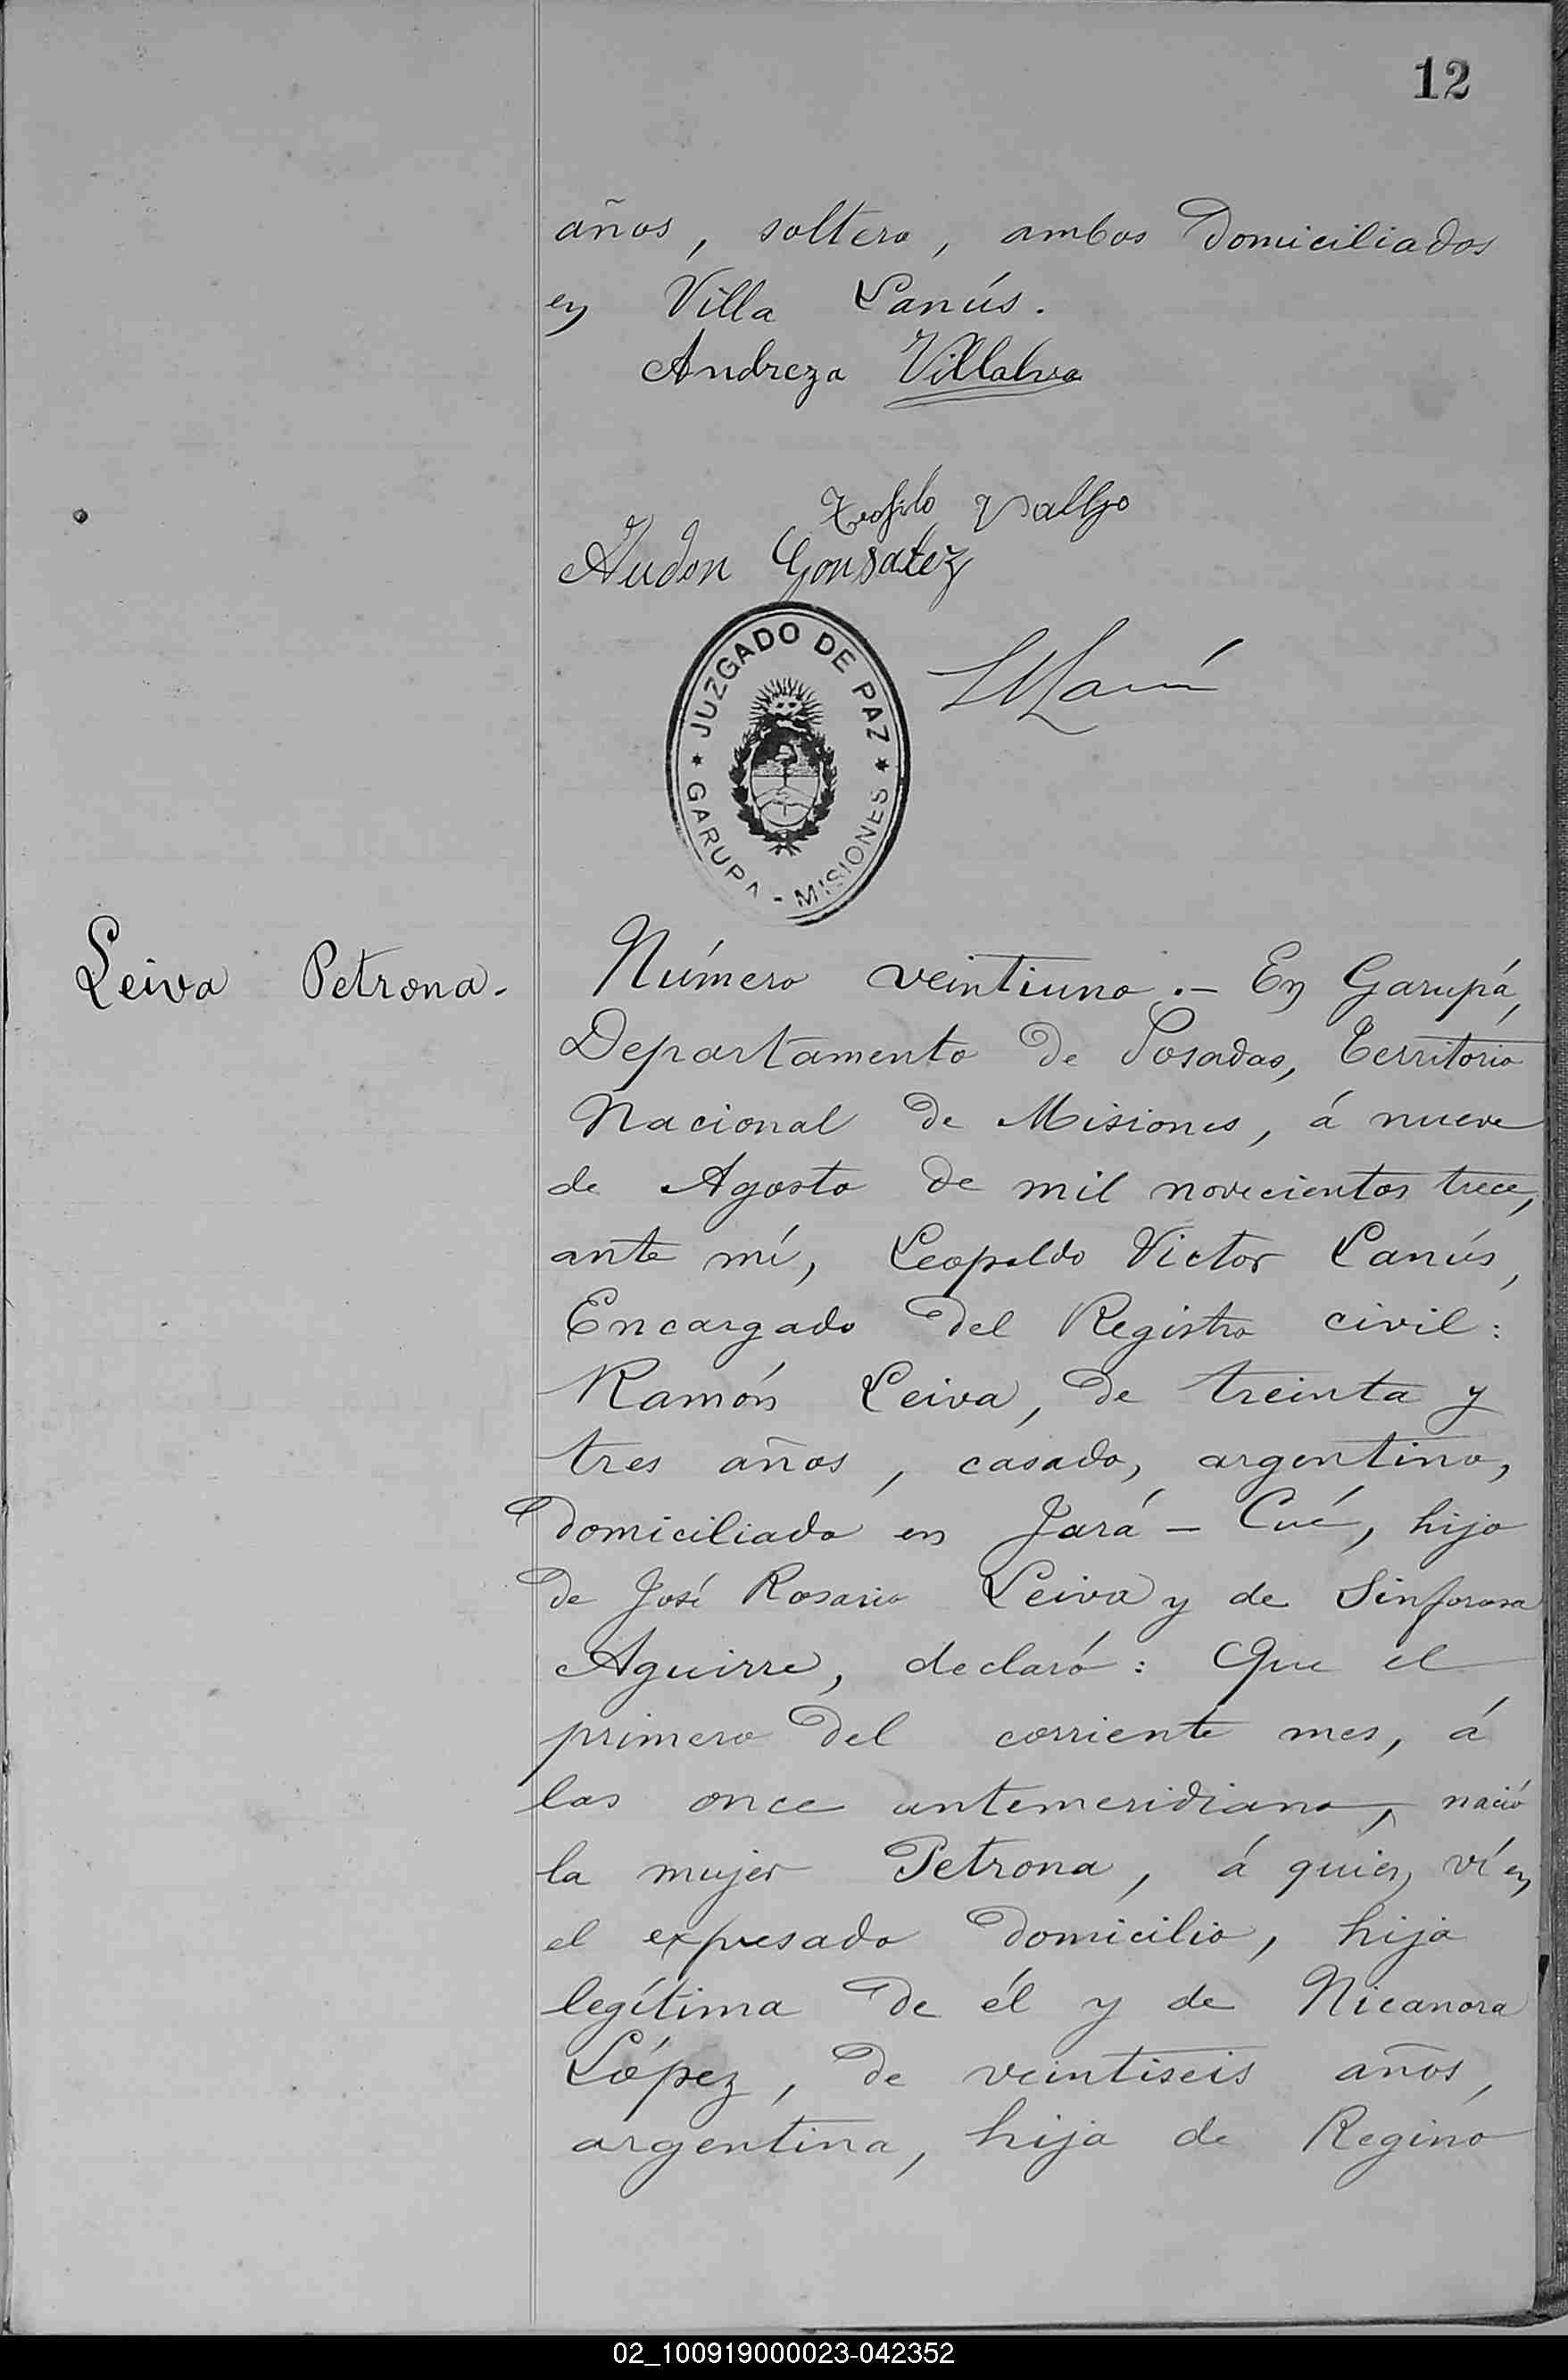 12
años, soltero, ambos domiciliados
en Villa Lanús.
Andreza Villalva
Teofilo Vallejo
Audon Gonsalez
JUZGADO DE PAZ
GARUPA - MISIONES
Leiva Petrona.
Número veintiuno.- En Garupá,
Departamento de Posadas, Territorio
Nacional de Misiones, á nueve
de Agosto de mil novecientos trece,
ante mí, Leopoldo Victor Lanús,
Encargado del Registro civil:
Ramón Leiva, de treinta y
tres años, casado, argentino,
domiciliado en Jará - Cué, hijo
de José Rosario Leiva y de Sinforosa
Aguirre, declaró: Que el
primero del corriente mes, á
las once antemeridiano, nació
la mujer Petrona, á quien ví en
el expresado domicilio, hija
legítima de él y de Nicanora
López, de veintiseis años,
argentina, hija de Regino
02_100919000023-042352